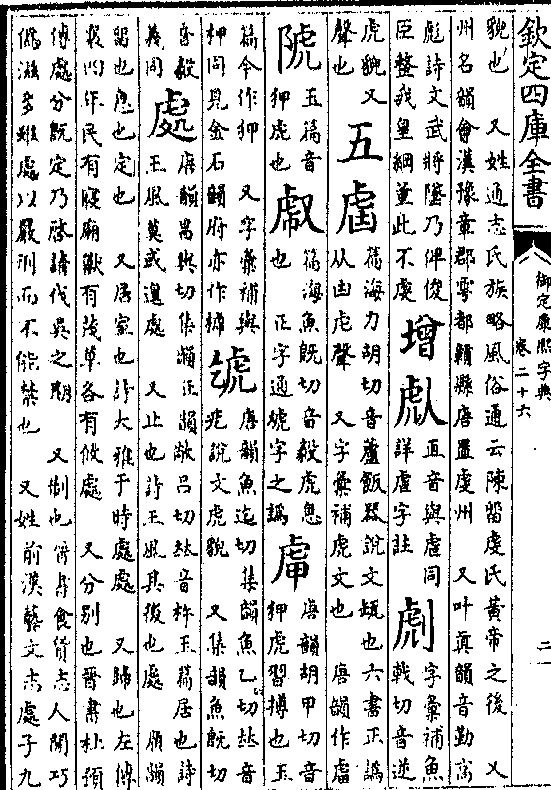 欽定四庫全書
御定康熙字典
卷二十六
二
貌也 又姓通志氏族略風俗通云陳留虔氏黃帝之後 又
州名韻會漢豫章郡雩都贛縣唐置虔州 又叶真韻音勤高
彪詩文武將墜乃俾俊
臣整我皇綱董此不虔
增
直音與虛同
詳虛字註
字彙補魚
戟切音逆
虎貌 又
聲也
五
篇海力胡切音蘆飯器說文㼜也六書正譌
从甾虍聲 又字彙補虎文也 唐韻作虘
玉篇音
狎虎也
篇海魚既切音毅虎息
也 正字通虓字之譌
唐韻胡甲切音
狎虎習搏也玉
篇今作狎 又字彙補與
柙同見金石韻府亦作㯓
唐韻魚迄切集韻魚乙切𠀤音
疙說文虎貌 又集韻魚既切
音毅
義同
處
唐韻昌與切集韻正韻敞呂切𠀤音杵玉篇居也詩
王風莫或遑處 又止也詩王風其後也處 廣韻
留也息也定也 又居室也詩大雅于時處處 又歸也左傳
襄四年民有寢廟獸有茂草各有攸處 又分別也晉書杜預
傳處分既定乃啓請伐吳之期 又制也晉書食貨志人間巧
僞滋多雖處以嚴刑而不能禁也 又姓 前漢藝文志處子九